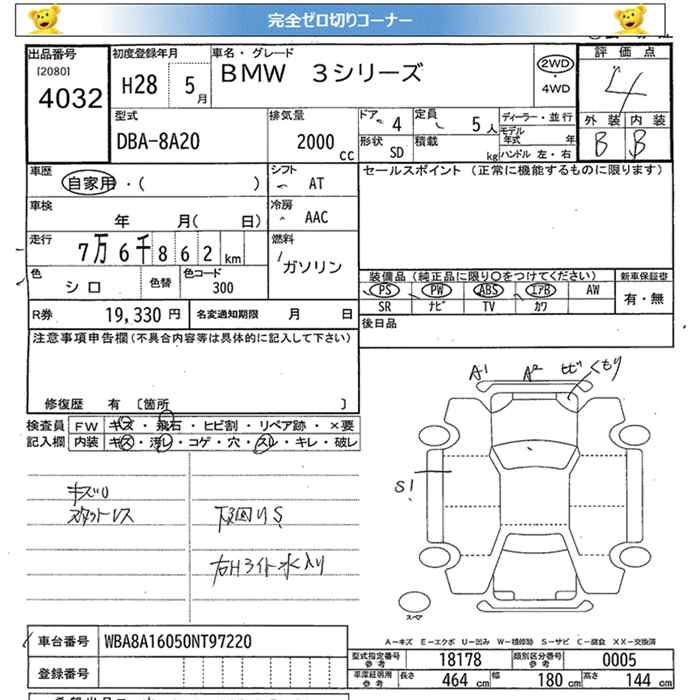 完全ゼロ切りコーナー
出品番号 初度登録年月 車名・グレード 評価点
[2080]
4032 H28 5月 BMW 3シリーズ 2WD・4WD 4
型式 排気量 ドア 定員 ディーラー・並行 外装 内装
DBA-8A20 2000cc 4 5人 モデル年式 年 B B
形状 SD 積載 kg ハンドル 左・右
車歴 シフト セールスポイント (正常に機能するものに限ります)
自家用・( ) AT
車検 冷房
年 月( 日) AAC
走行 燃料
7万6千862km ガソリン
色 色替 色コード 装備品 (純正品に限り○をつけてください) 新車保証書
シロ 300 PS PW ABS エアB AW 有・無
SR ナビ TV カワ
R券 19,330円 名変通知期限 月 日 後日品
注意事項申告欄(不具合内容等は具体的に記入して下さい)
修復歴 有 [箇所 ]
A1 A2 ヒビ くもり
検査員 FW キズ・飛石・ヒビ割・リペア跡・×要
記入欄 内装 キズ・汚レ・コゲ・穴・スレ・キレ・破レ
S1
キズU
スタットレス 下回りS
右Hライト水入り
スペア
車台番号 WBA8A16050NT97220
A-キズ E-エクボ U-凹み W-補修跡 S-サビ C-腐食 XX-交換済
登録番号
型式指定番号 参考 18178 類別区分番号 参考 0005
車庫証明用 参考 長さ 464cm 幅 180cm 高さ 144cm